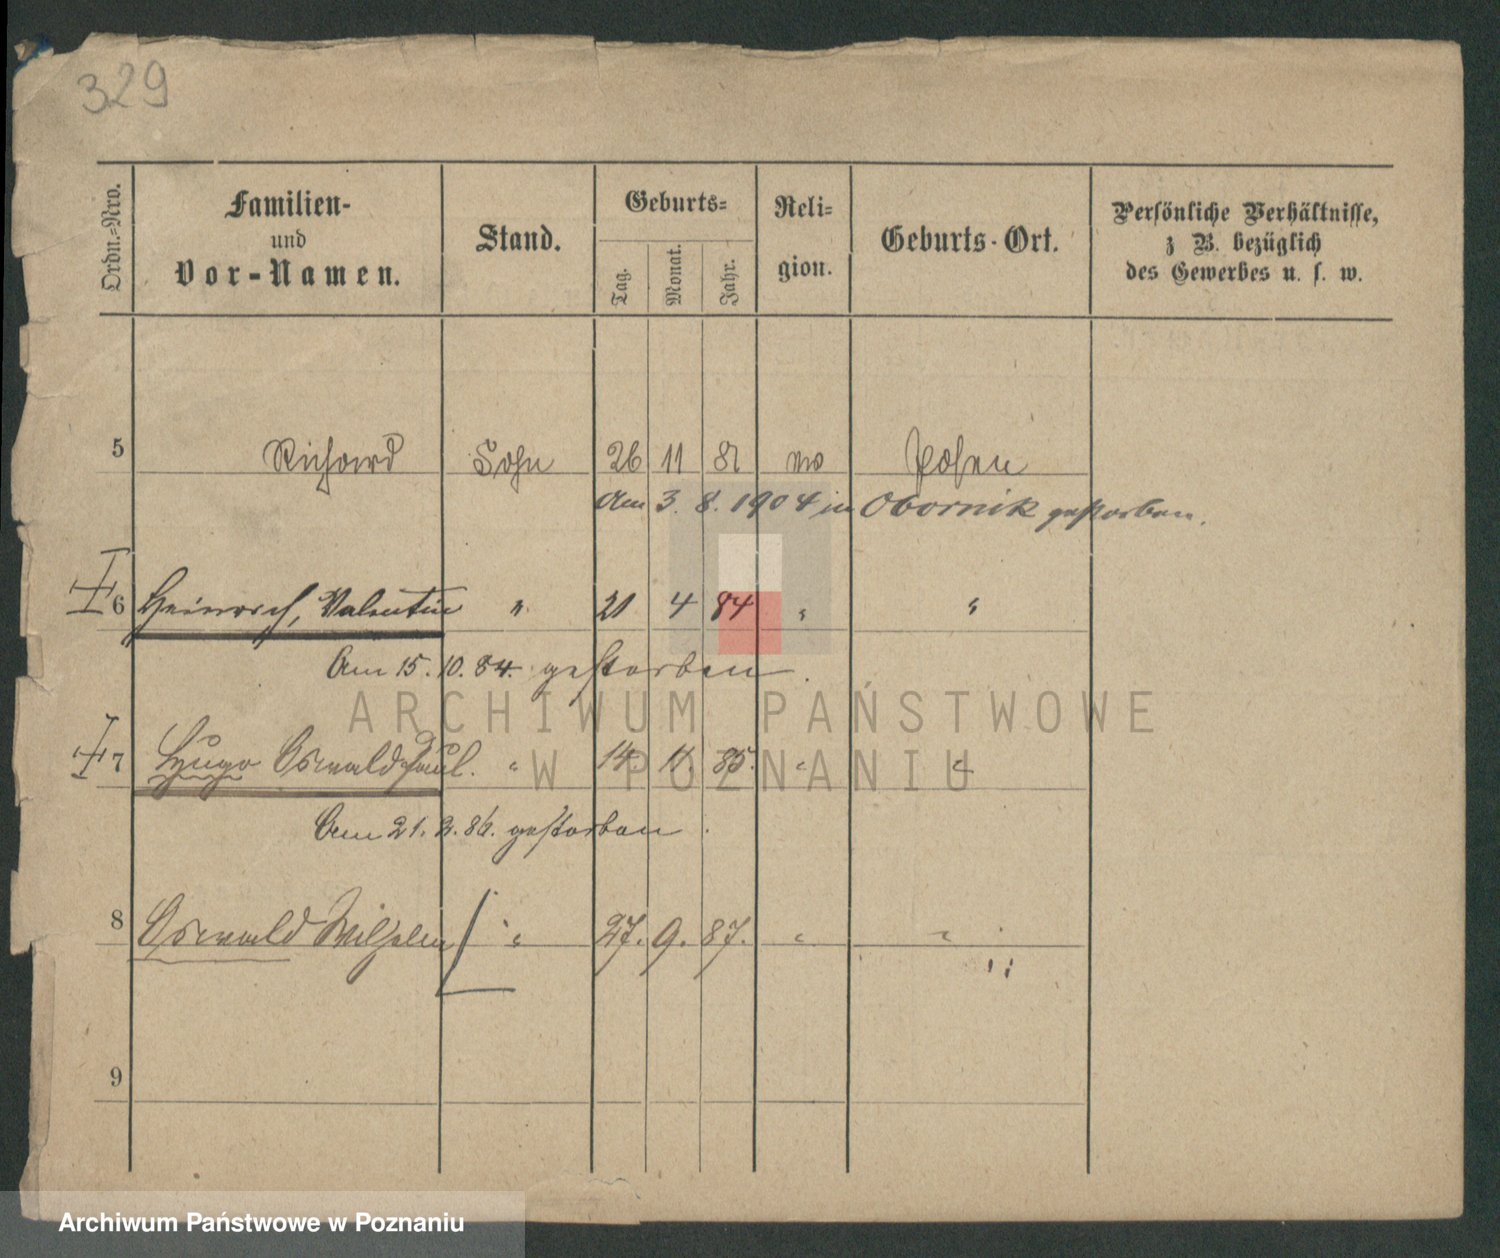 329
Ordn.-Nro.
Familien-
und
Vor-Namen.
Stand.
Geburts-
Tag.
Monat.
Jahr.
Reli-
gion.
Geburts-Ort.
Persönliche Verhältnisse,
z B. bezüglich
des Gewerbes u. s. w.
5 Richard Sohn 26 11 81 Posen
Am 3. 8. 1904 in Obornik gestorben.
6 Heinrich, Valentin " 21 4 84 " "
Am 15. 10. 84. gestorben.
7 Hugo Oswald Paul. " 14. 11. 85. " "
Am 21. 2. 86. gestorben.
8 Oswald Wilhelm " 27. 9. 87. " "
9
ARCHIWUM PAŃSTWOWE
W POZNANIU
Archiwum Państwowe w Poznaniu